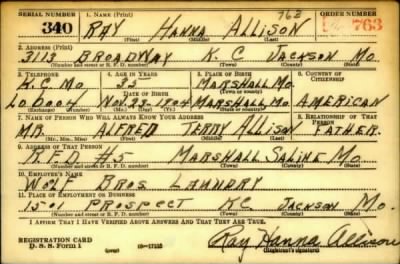 SERIAL NUMBER 1. NAME (Print) ORDER NUMBER
763
340 RAY HANNA ALLISON 763
(First) (Middle) (Last)
2. ADDRESS (Print)
3113 BROADWAY K.C JACKSON MO.
(Number and street or R. F. D. number) (Town) (County) (State)
3. TELEPHONE 4. AGE IN YEARS 5. PLACE OF BIRTH 6. COUNTRY OF CITIZENSHIP
K.C. MO. 35 MARSHALL MO.
DATE OF BIRTH (Town or county)
NOV. 23-1904 MARSHALL MO. AMERICAN
(Exchange) (Number) (Mo.) (Day) (Yr.) (State or country)
7. NAME OF PERSON WHO WILL ALWAYS KNOW YOUR ADDRESS 8. RELATIONSHIP OF THAT PERSON
MR. ALFRED TERRY ALLISON FATHER.
(Mr., Mrs., Miss) (First) (Middle) (Last)
9. ADDRESS OF THAT PERSON
R.F.D #5 MARSHALL SALINE MO.
(Number and street or R. F. D. number) (Town) (County) (State)
10. EMPLOYER'S NAME
WOLF BROS. LAUNDRY
11. PLACE OF EMPLOYMENT OR BUSINESS
1501 PROSPECT KC JACKSON MO.
(Number and street or R. F. D. number) (Town) (County) (State)
I AFFIRM THAT I HAVE VERIFIED ABOVE ANSWERS AND THAT THEY ARE TRUE.
REGISTRATION CARD
D. S. S. FORM 1 (over) 16-17105
Ray Hanna Allison
(Registrant's signature)